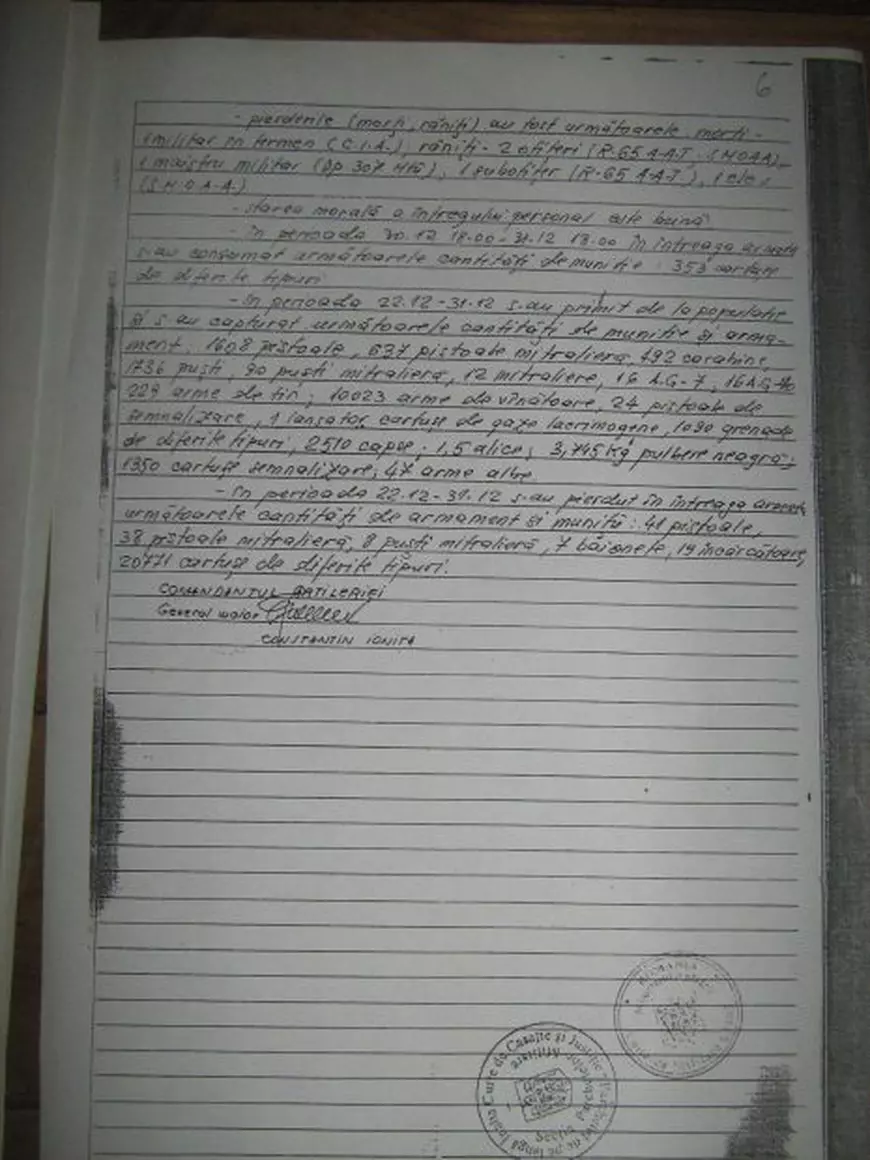 6
- pierderile (morți, răniți) au fost următoarele: morți -
1 militar în termen (C.I.A.), răniți - 2 ofițeri (R-65 A.A-T. S.M.O.A.A.),
1 maistru militar (Dp 307 Htă), 1 subofițer (R-65 A.A-T), 1 elev
(S.M.O.A.A.)
- starea morală a întregului personal este bună
- în perioada 30.12 18.00 - 31.12 18.00 în întreaga armată
s-au consumat următoarele cantități de muniție: 353 cartușe
de diferite tipuri
- În perioada 22.12-31.12 s-au primit de la populație
și s-au capturat următoarele cantități de muniție și arma-
ment: 1608 pistoale, 637 pistoale mitralieră, 492 carabine,
1736 puști, 90 puști mitralieră, 12 mitraliere, 16 A.G-7, 16 AG-40
229 arme de tir; 10023 arme de vînătoare, 24 pistoale de
semnalizare, 1 lansator cartușe de gaze lacrimogene, 1090 grenade
de diferite tipuri, 2510 capse; 1,5 alice; 3,745 Kg pulbere neagră;
1350 cartușe semnalizare; 47 arme albe.
- În perioada 22.12-31.12 s-au pierdut în întreaga armată
următoarele cantități de armament și muniții: 41 pistoale,
38 pistoale mitralieră, 8 puști mitralieră, 7 baionete, 19 încărcătoare,
20771 cartușe de diferite tipuri.
COMANDANTUL ARTILERIEI
General maior
CONSTANTIN IONIȚA
ROMÂNIA
Parchetul de pe lângă Înalta Curte de Casație și Justiție
Secția Parchetelor Militare